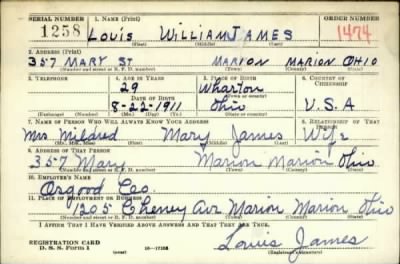 SERIAL NUMBER 1. NAME (Print) ORDER NUMBER
1258 LOUIS WILLIAM JAMES 1474
(First) (Middle) (Last)
2. ADDRESS (Print)
357 MARY ST MARION MARION OHIO
(Number and street or R. F. D. number) (Town) (County) (State)
3. TELEPHONE 4. AGE IN YEARS 5. PLACE OF BIRTH 6. COUNTRY OF CITIZENSHIP
29 Wharton
DATE OF BIRTH (Town or county)
8-22-1911 Ohio U.S.A
(Exchange) (Number) (Mo.) (Day) (Yr.) (State or country)
7. NAME OF PERSON WHO WILL ALWAYS KNOW YOUR ADDRESS 8. RELATIONSHIP OF THAT PERSON
Mrs. Mildred Mary James Wife
(Mr., Mrs., Miss) (First) (Middle) (Last)
9. ADDRESS OF THAT PERSON
357 Mary Marion Marion Ohio
(Number and street or R. F. D. number) (Town) (County) (State)
10. EMPLOYER'S NAME
Osgood Co.
11. PLACE OF EMPLOYMENT OR BUSINESS
1205 Cheney Av Marion Marion Ohio
(Number and street or R. F. D. number) (Town) (County) (State)
I AFFIRM THAT I HAVE VERIFIED ABOVE ANSWERS AND THAT THEY ARE TRUE.
REGISTRATION CARD
D. S. S. Form 1 Louis James